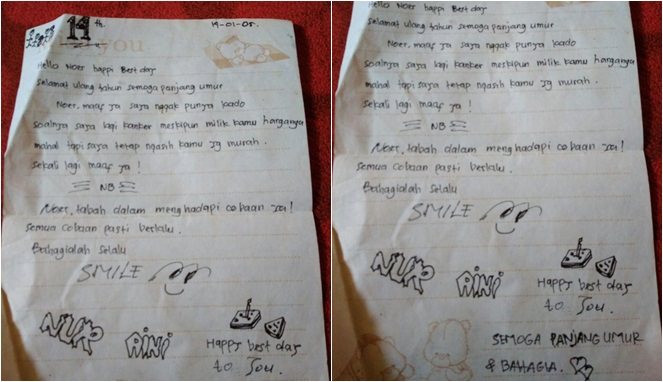 14 th. 14-01-05.
you
Hello Noer happi Best day
Selamat ulang tahun semoga panjang umur
Noer, maaf ya saya nggak punya kado
soalnya saya lagi kanker meskipun milik kamu harganya
mahal tapi saya tetap ngasih kamu yg murah.
sekali lagi maaf ya!
NB
Noer, tabah dalam menghadapi cobaan ya!
semua cobaan pasti berlalu.
Berbahagialah selalu
SMILE
NUR AINI
Happy best day
to You.
Hello Noer happi Best day
Selamat ulang tahun semoga panjang umur
Noer, maaf ya saya nggak punya kado
soalnya saya lagi kanker meskipun milik kamu harganya
mahal tapi saya tetap ngasih kamu yg murah.
sekali lagi maaf ya!
NB
Noer, tabah dalam menghadapi cobaan ya!
semua cobaan pasti berlalu.
Berbahagialah selalu
SMILE
NUR AINI
Happy best day
to You.
SEMOGA PANJANG UMUR
& BAHAGIA.